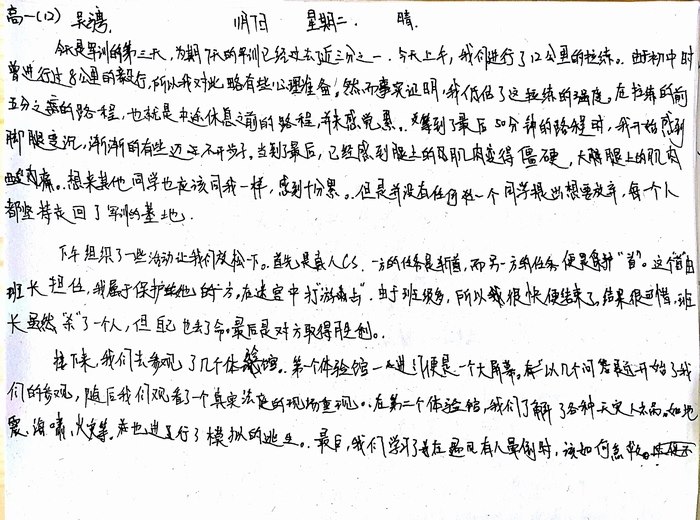 高一(12) 吴鸿 11月7日 星期二. 晴.
今天是军训的第三天,为期7天的军训已经过去近三分之一.今天上午,我们进行了12公里的拉练。由于初中时
曾进行过8公里的毅行,所以我对此略有些心理准备,然而事实证明,我低估了这拉练的强度。在拉练的前
五分之的路程,也就是中途休息之前的路程,并未感觉累。到了最后50分钟的路程时,我开始感到
脚腿变沉,渐渐的有些迈不开步子。当到了最后,已经感到腿上的肌肉变得僵硬,大腿上的肌肉
酸痛。想来其他同学也应该同我一样,感到十分累。但是并没有任何一个同学提出想要放弃,每个人
都坚持走回了军训的基地.
下午组织了一些活动让我们放松一下。首先是真人CS.一方的任务是斩首,而另一方的任务便是保护"首"。这个"首"由
班长担任,我属于保护他的一方,在迷宫中打"游击"。由于班级多,所以我很快便结束了。结果很可惜,班
长虽然"杀"了一人,但自己也去了命。最后是对方取得胜利。
接下来,我们去参观了几个体验馆。第一个体验馆一进门便是一个大屏幕。以几个问答开始了我
们的参观,随后我们观看了一个真实法庭的现场重现。在第二个体验馆,我们了解了各种天灾人祸。如地
震,海啸,火灾等,并也进行了模拟的逃生。最后,我们学习了在遇见有人晕倒时,该如何急救。